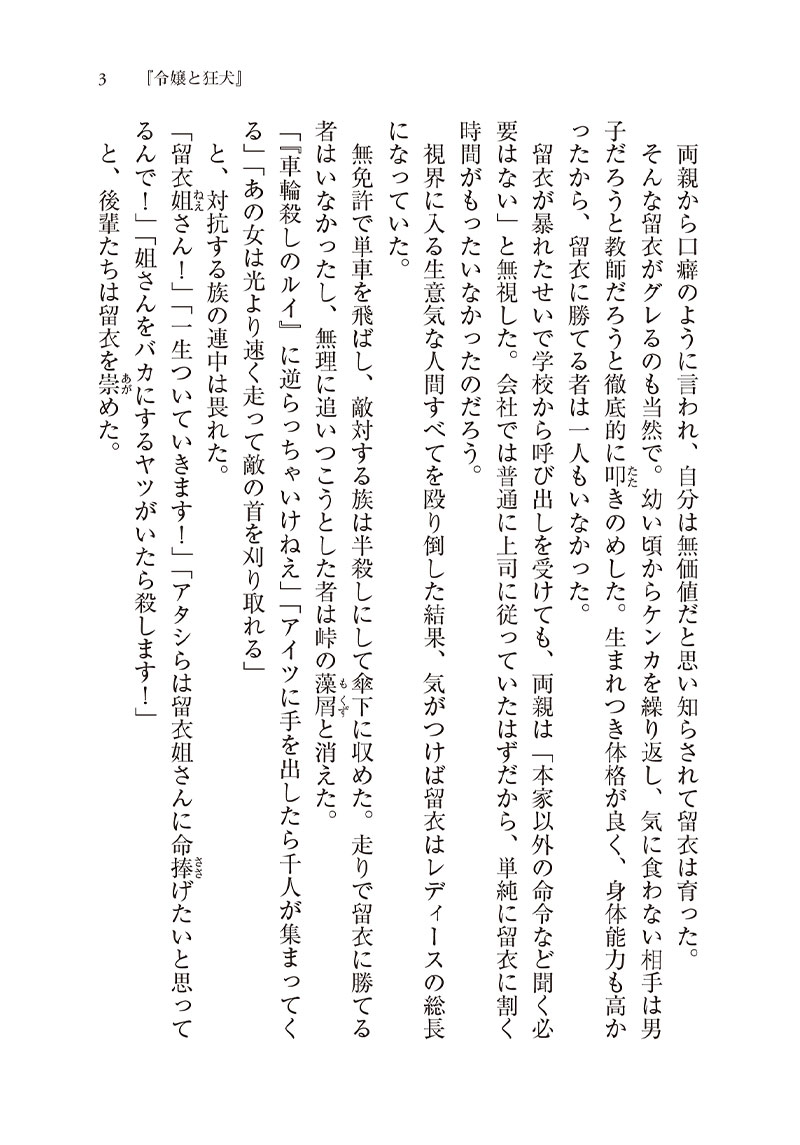 3 『令嬢と狂犬』
両親から口癖のように言われ、自分は無価値だと思い知らされて留衣は育った。
そんな留衣がグレるのも当然で。幼い頃からケンカを繰り返し、気に食わない相手は男
子だろうと教師だろうと徹底的に叩きのめした。生まれつき体格が良く、身体能力も高か
ったから、留衣に勝てる者は一人もいなかった。
留衣が暴れたせいで学校から呼び出しを受けても、両親は「本家以外の命令など聞く必
要はない」と無視した。会社では普通に上司に従っていたはずだから、単純に留衣に割く
時間がもったいなかったのだろう。
視界に入る生意気な人間すべてを殴り倒した結果、気がつけば留衣はレディースの総長
になっていた。
無免許で単車を飛ばし、敵対する族は半殺しにして傘下に収めた。走りで留衣に勝てる
者はいなかったし、無理に追いつこうとした者は峠の藻屑と消えた。
「『車輪殺しのルイ』に逆らっちゃいけねえ」「アイツに手を出したら千人が集まってく
る」「あの女は光より速く走って敵の首を刈り取れる」
と、対抗する族の連中は畏れた。
「留衣姐さん！」「一生ついていきます！」「アタシらは留衣姐さんに命捧げたいと思って
るんで！」「姐さんをバカにするヤツがいたら殺します！」
と、後輩たちは留衣を崇めた。